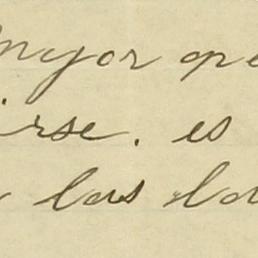 mayor ope
irse. es
las